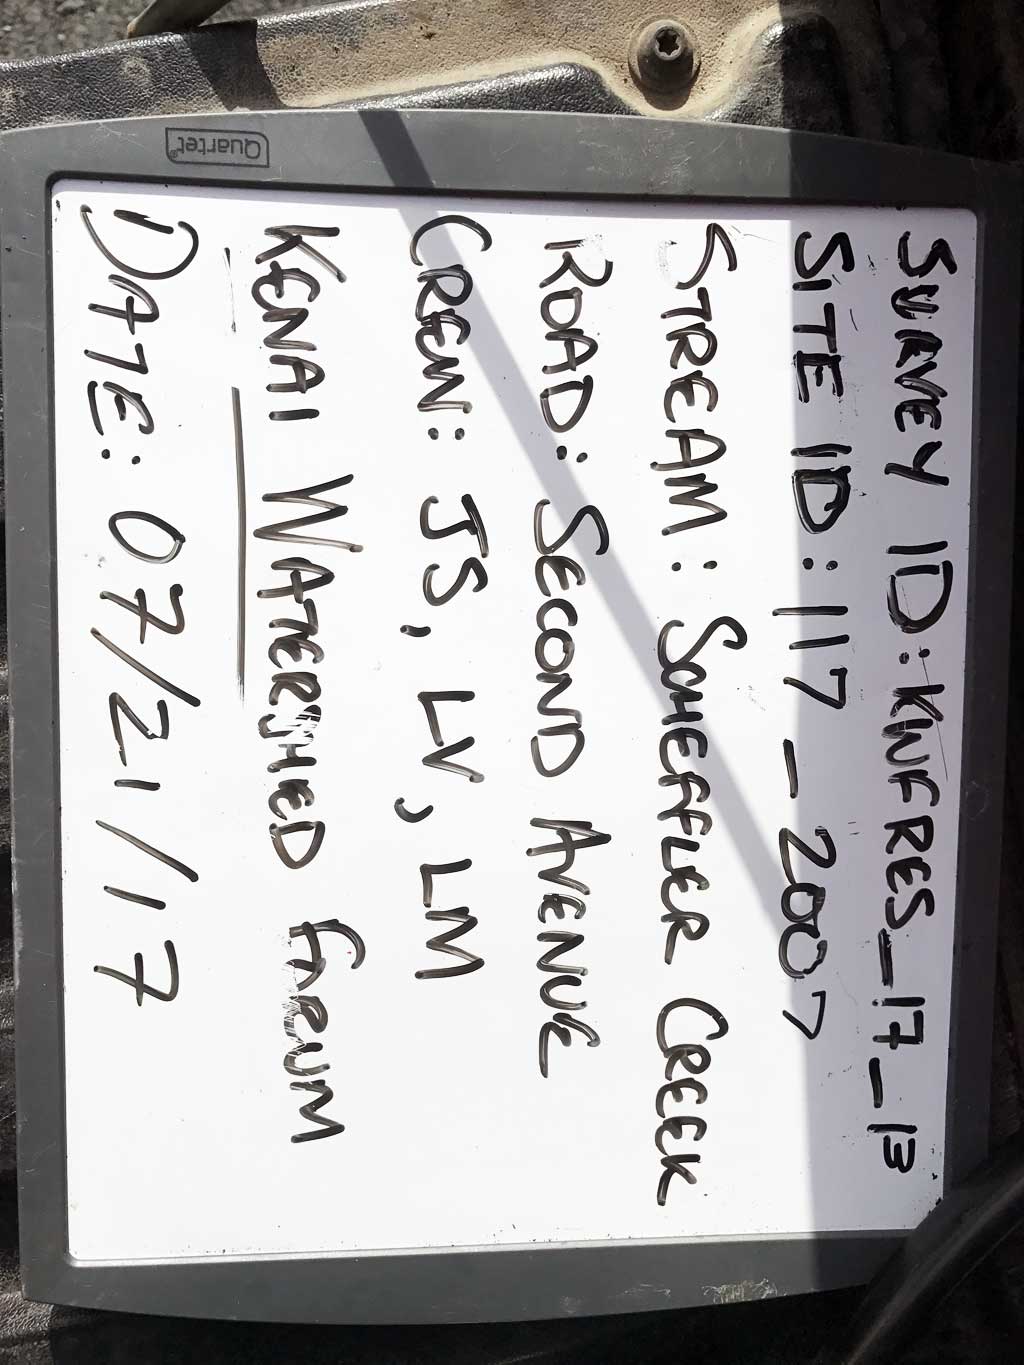 SURVEY ID: KWFRES_17_13
SITE ID: 117_2007
STREAM: SCHEFFLER CREEK
ROAD: SECOND AVENUE
CREW: JS, LV, LM
KENAI WATERSHED FORUM
DATE: 07/21/17
Quartet®